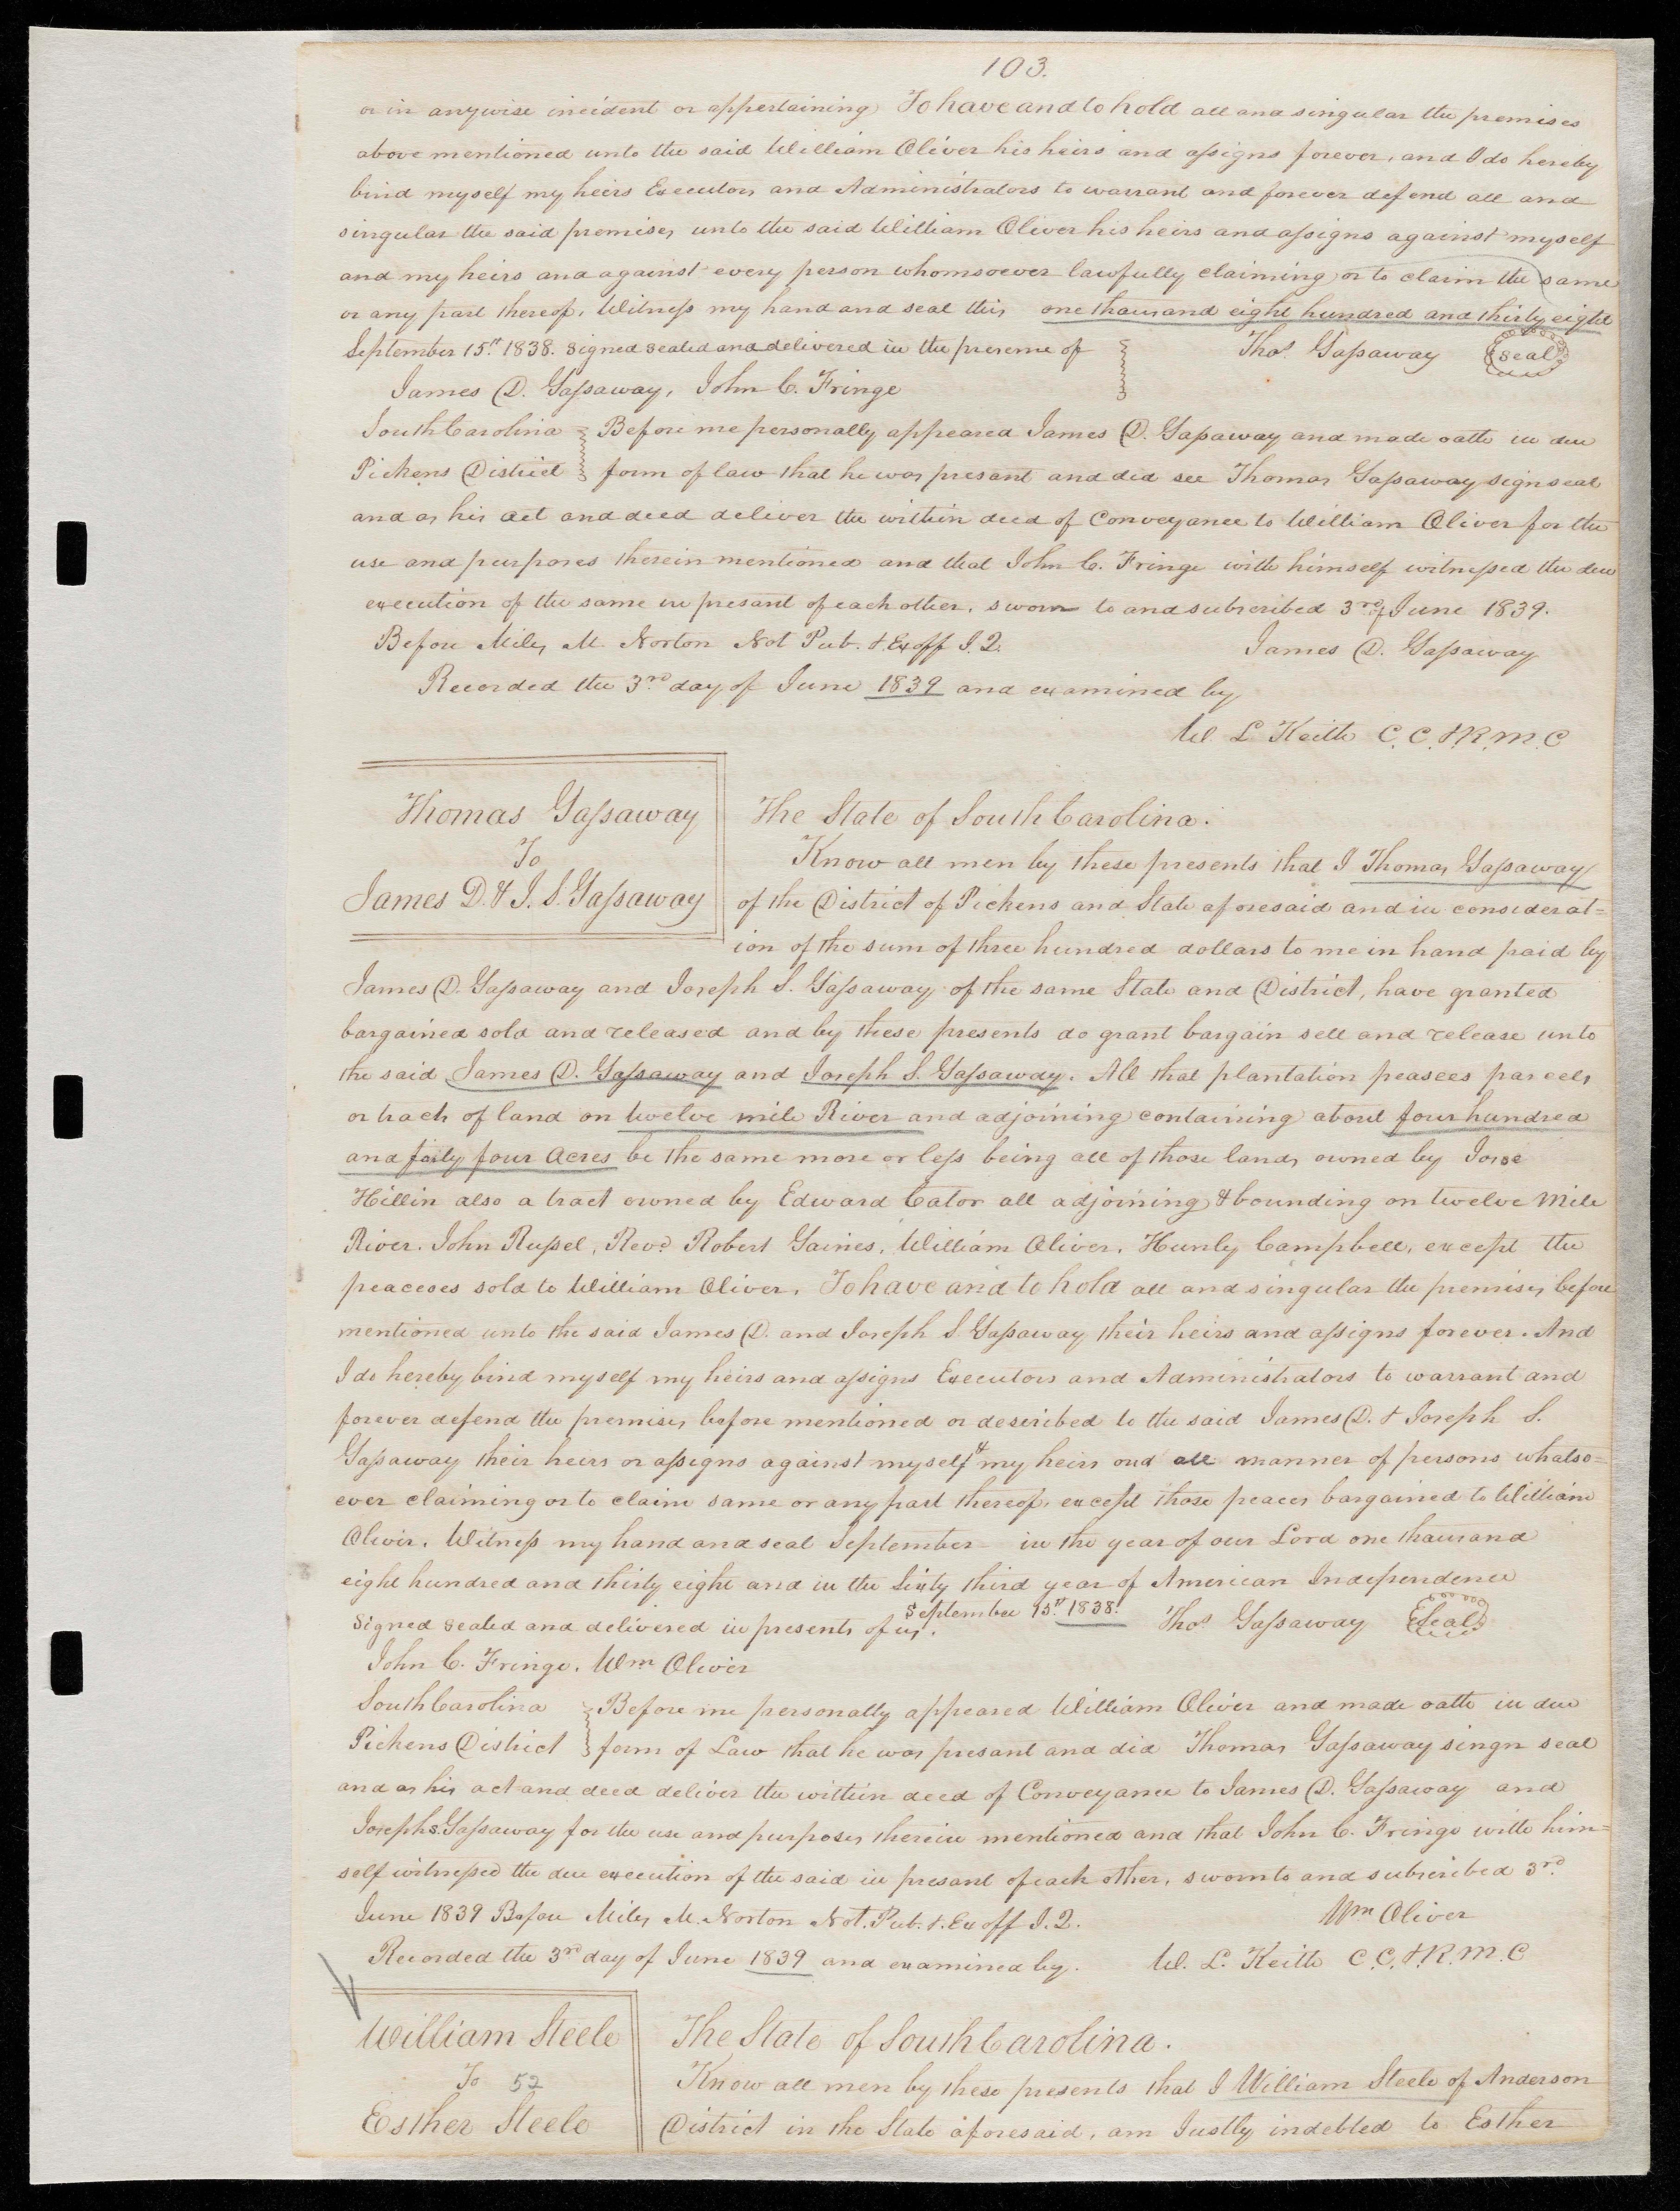 103.
or in anywise incident or appertaining To have and to hold all and singular the premises
above mentioned unto the said William Oliver his heirs and assigns forever, and I do hereby
bind myself my heirs Executors and Administrators to warrant and forever defend all and
singular the said premises unto the said William Oliver his heirs and assigns against myself
and my heirs and against every person whomsoever lawfully claiming or to claim the same
or any part thereof. Witness my hand and seal this one thousand eight hundred and thirty eight
September 15th 1838. Signed sealed and delivered in the presence of Thos Gassaway (seal)
James D. Gassaway, John C. Fringe
South Carolina Before me personally appeared James D. Gassaway and made oath in due
Pickens District form of law that he was presant and did see Thomas Gassaway sign seal
and as his act and deed deliver the within deed of Conveyance to William Oliver for the
use and purposes therein mentioned and that John C. Fringe with himself witnessed the due
execution of the same in presant of each other. sworn to and subscribed 3rd of June 1839.
Before Miles M. Norton Not Pub. & Ex off J. Q. James D. Gassaway
Recorded the 3rd day of June 1839 and examined by
W. L. Keith C. C. & R. M. C
Thomas Gassaway
To
James D. & J. S. Gassaway
The State of South Carolina.
Know all men by these presents that I Thomas Gassaway
of the District of Pickens and State aforesaid and in considerat=
ion of the sum of three hundred dollars to me in hand paid by
James D. Gassaway and Joseph S. Gassaway of the same State and District, have granted
bargained sold and released and by these presents do grant bargain sell and release unto
the said James D. Gassaway and Joseph S. Gassaway. All that plantation peasces parcels
or tracts of land on twelve mile River and adjoining containing about four hundred
and forty four Acres be the same more or less being all of those lands owned by
Hillin also a tract owned by Edward Cator all adjoining & bounding on twelve Mile
River. John Russel, Revd Robert Gaines, William Oliver, Hunly Campbell, except the
peaceses sold to William Oliver. To have and to hold all and singular the premises before
mentioned unto the said James D. and Joseph S Gassaway their heirs and assigns forever. And
I do hereby bind myself my heirs and assigns Executors and Administrators to warrant and
forever defend the premises before mentioned or described to the said James D. & Joseph S.
Gassaway their heirs or assigns against myself & my heirs and all manner of persons whatso=
ever claiming or to claim same or any part thereof. except those peaces bargained to William
Oliver. Witness my hand and seal September in the year of our Lord one thousand
eight hundred and thirty eight and in the Sixty third year of American Independence
Signed sealed and delivered in presents of us. September 15th 1838. Thos Gassaway (Seal)
John C. Fringe. Wm Oliver
South Carolina Before me personally appeared William Oliver and made oath in due
Pickens District form of Law that he was presant and did Thomas Gassaway singn seal
and as his act and deed deliver the within deed of Conveyance to James D. Gassaway and
Joseph S. Gassaway for the use and purposes therein mentioned and that John C. Fringe with him=
self witnessed the due execution of the said in presant of each other, sworn to and subscribed 3rd
June 1839 Before Miles M. Norton Not. Pub. & Ex off J. Q. Wm Oliver
Recorded the 3rd day of June 1839 and examined by. W. L. Keith C. C. & R. M. C
William Steele
To 52
Esther Steele
The State of South Carolina.
Know all men by these presents that I William Steele of Anderson
District in the State aforesaid, am Justly indebted to Esther